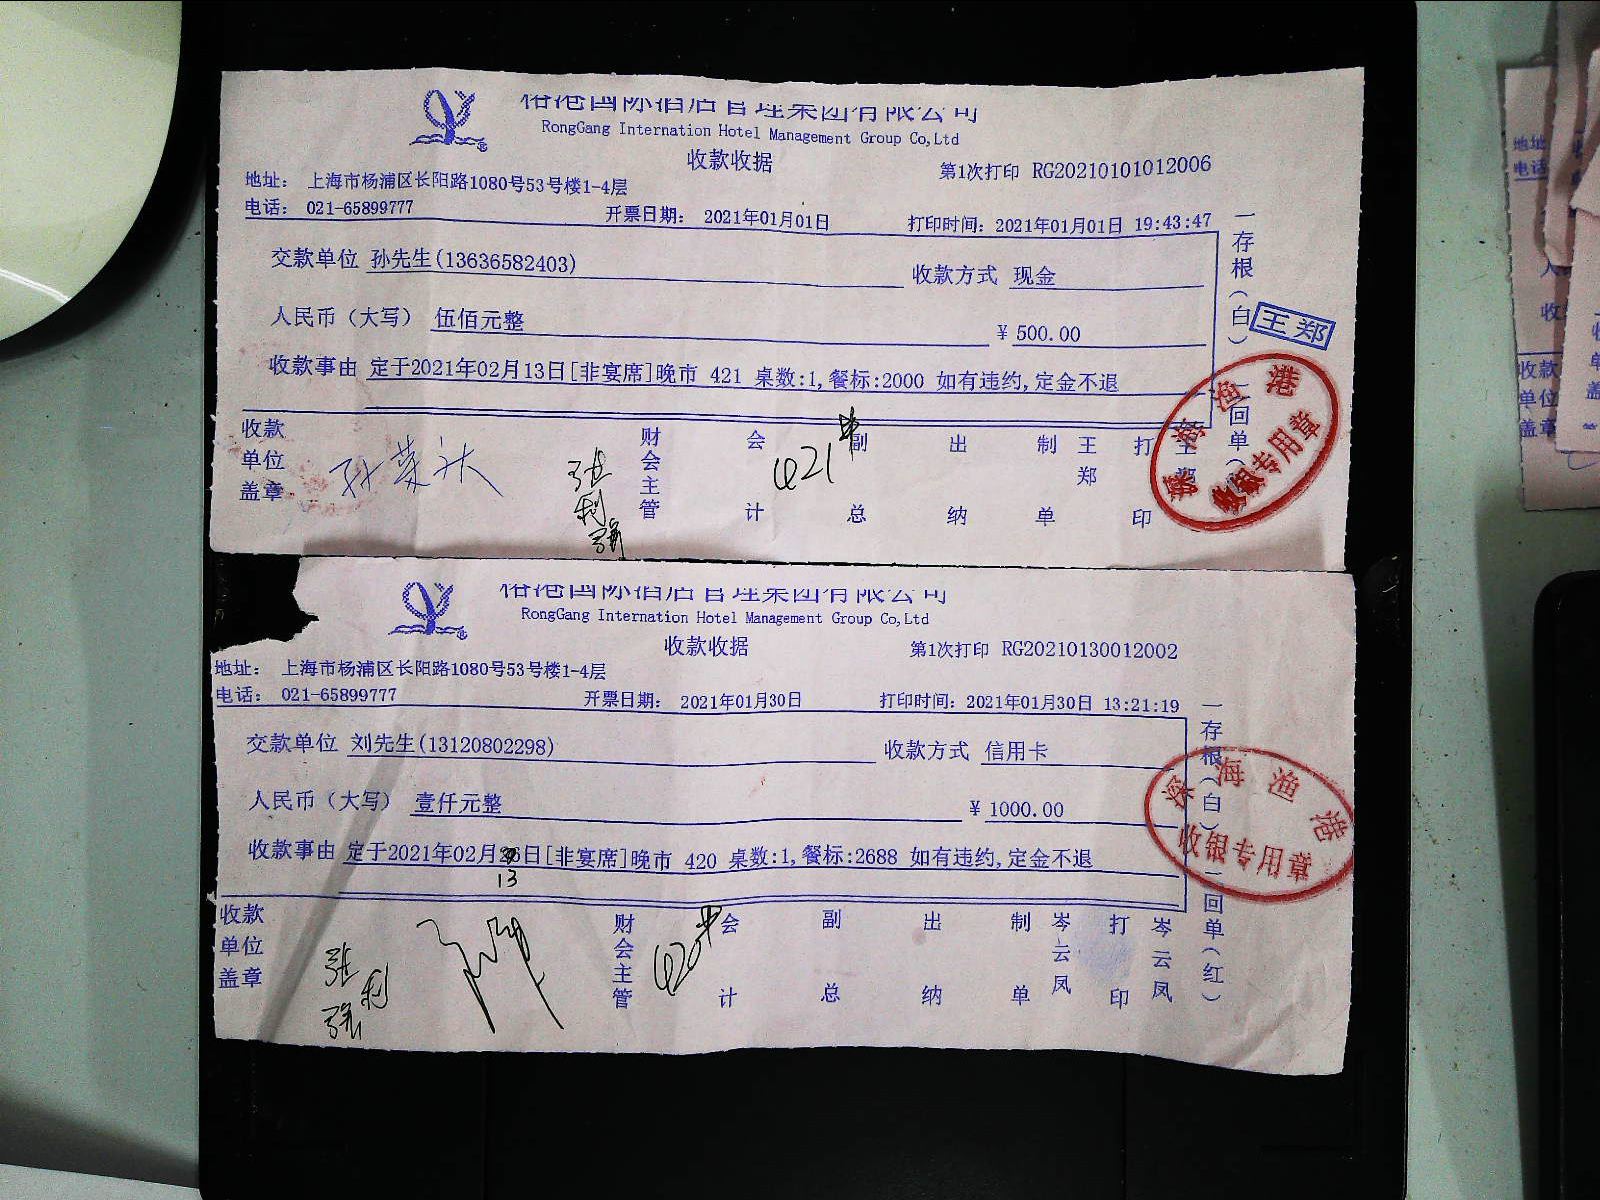 榕港国际酒店管理集团有限公司
RongGang Internation Hotel Management Group Co,Ltd
收款收据
第1次打印 RG20210101012006
地址： 上海市杨浦区长阳路1080号53号楼1-4层
电话： 021-65899777
开票日期： 2021年01月01日
打印时间：2021年01月01日 19:43:47
交款单位 孙先生(13636582403)
收款方式 现金
人民币（大写） 伍佰元整
¥ 500.00
收款事由 定于2021年02月13日[非宴席]晚市 421 桌数:1,餐标:2000 如有违约,定金不退
一存根（白）
二回单
王郑
深海渔港
收银专用章
收款单位盖章
张利强
财会主管
421
会计
副总
出纳
制单
王郑
打印
王郑
榕港国际酒店管理集团有限公司
RongGang Internation Hotel Management Group Co,Ltd
收款收据
第1次打印 RG20210130012002
地址： 上海市杨浦区长阳路1080号53号楼1-4层
电话： 021-65899777
开票日期： 2021年01月30日
打印时间：2021年01月30日 13:21:19
交款单位 刘先生(13120802298)
收款方式 信用卡
人民币（大写） 壹仟元整
¥ 1000.00
收款事由 定于2021年02月26日[非宴席]晚市 420 桌数:1,餐标:2688 如有违约,定金不退
13
一存根（白）
二回单（红）
深海渔港
收银专用章
收款单位盖章
张利强
财会主管
420
会计
副总
出纳
制单
岑云凤
打印
岑云凤
地址
电话
收款
单位
盖章